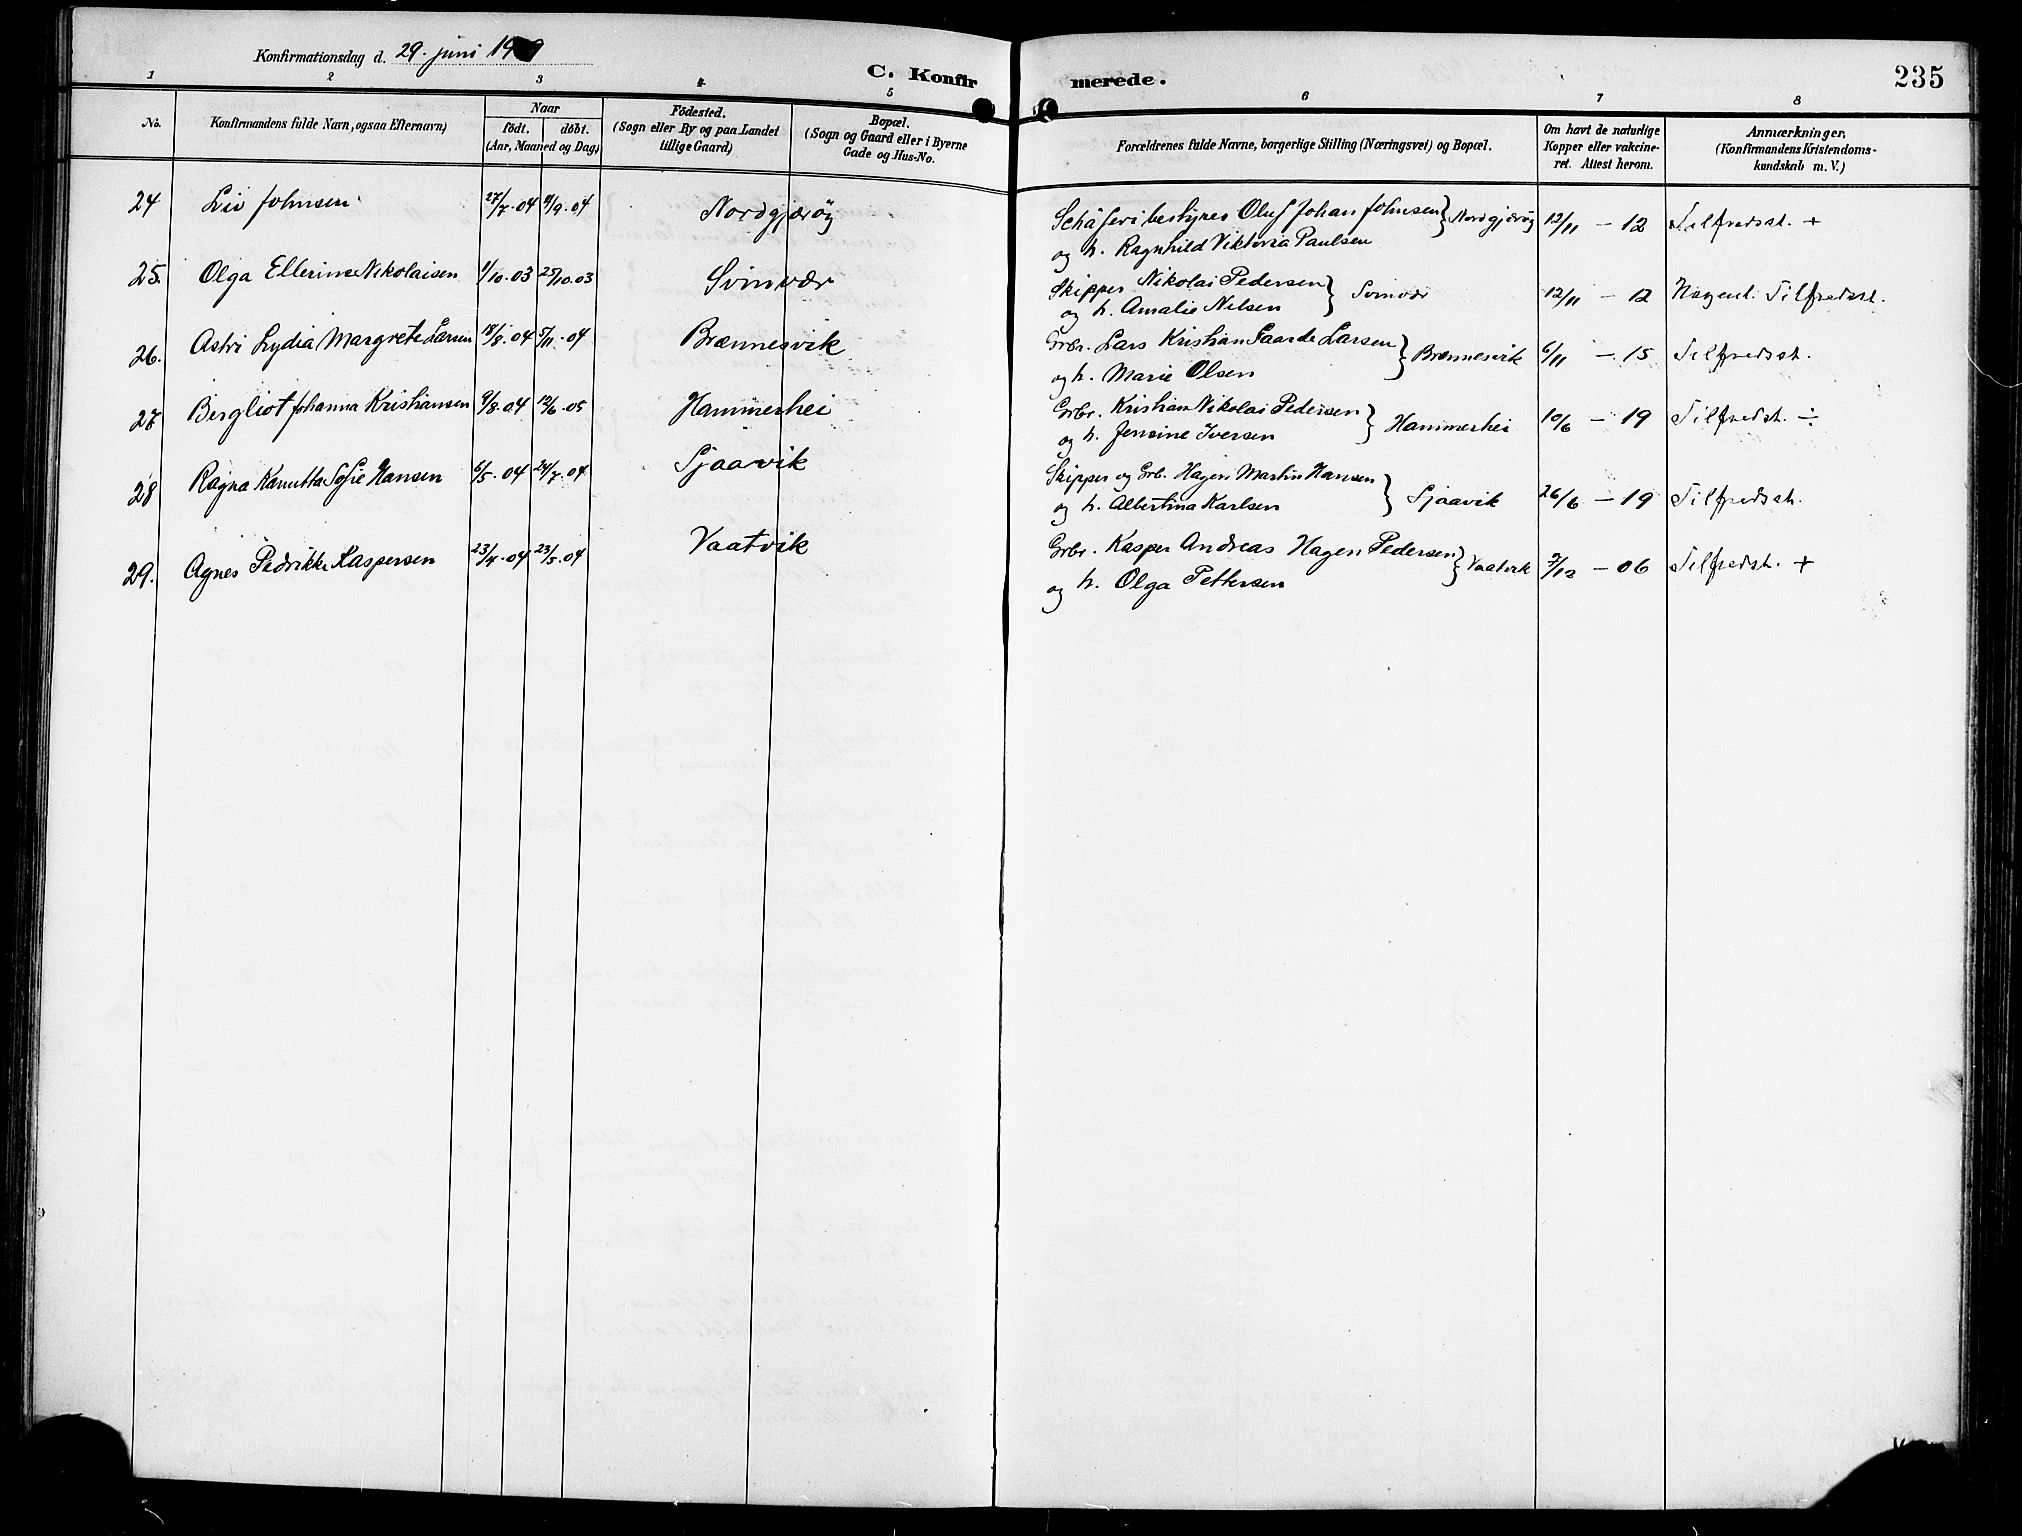 Konfirmationsdag d. 29. juni 19
C. Konfir merede.
235
1 2 3 4 5 6 7 8
No.
Konfirmandens fulde Navn, ogsaa Efternavn)
Naar
födt. döbt.
(Aar, Maaned og Dag)
Födested.
(Sogn eller By og paa Landet
tillige Gaard)
Bopæl.
(Sogn og Gaard eller i Byerne
Gade og Hus-No.
Forældrenes fulde Navne, borgerlige Stilling (Næringsvei) og Bopæl.
Om havt de naturlige
Kopper eller vakcine-
ret. Attest herom.
Anmærkninger,
(Konfirmandens Kristendoms-
kundskab m. V.)
24 Liv Johnsen 27/7·04 /9·04 Nordgjærøy Schäferibestyrer Oluf Johan Johnsen } Nordgjærøy 12/11 - 12 Tilfredsst. +
og h. Ragnhild Viktoria Paulsen
25. Olga Ellerine Nikolaisen 1/10·03 25/10·03 Svinvær Skipper Nikolai Pedersen } Svinvær 12/11 - 12 Nogenl. Tilfredsst.
og h. Amalie Nilsen
26. Astri Lydia Margrete Larsen 18/8·04 5/11·04 Brænnesvik Grbr. Lars Kristian Gaarde Larsen } Brænnesvik 6/11 - 15 Tilfredsst.
og h. Marie Olsen
27 Bergliot Johanna Kristiansen 9/8·04 12/6·05 Hammerhei Grbr. Kristian Nikolai Pedersen } Hammerhei 10/6 - 19 Tilfredsst. ÷
og h. Jensine Iversen
28 Ragna Kanutta Sofie Hansen 6/5·04 24/7·04 Sjaavik Skipper og Grb. Hagen Martin Hansen } Sjaavik 26/6 - 19 Tilfredsst.
og h. Albertina Karlsen
29. Agnes Pedrikke Kaspersen 23/4·04 23/5·04 Vaatvik Grbr. Kasper Andreas Hagen Pedersen } Vaatvik 7/12 - 06 Tilfredsst. +
og h. Olga Pettersen